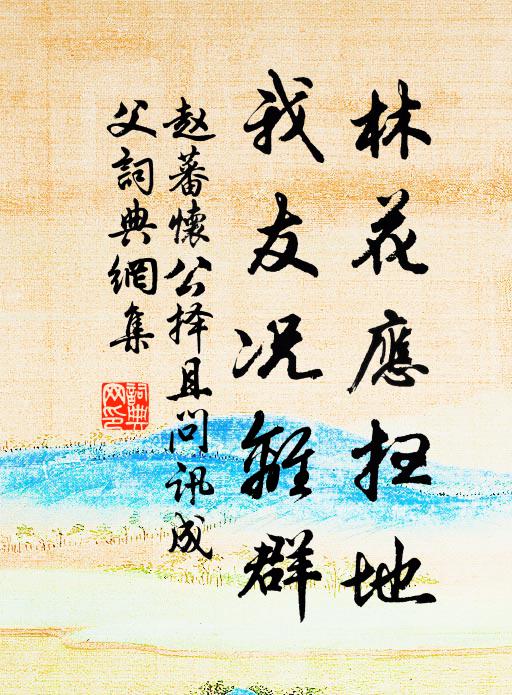 林花應扫地
我友况離群
赵蕃懷公择且问讯成
父詞典網集
詞典
网印